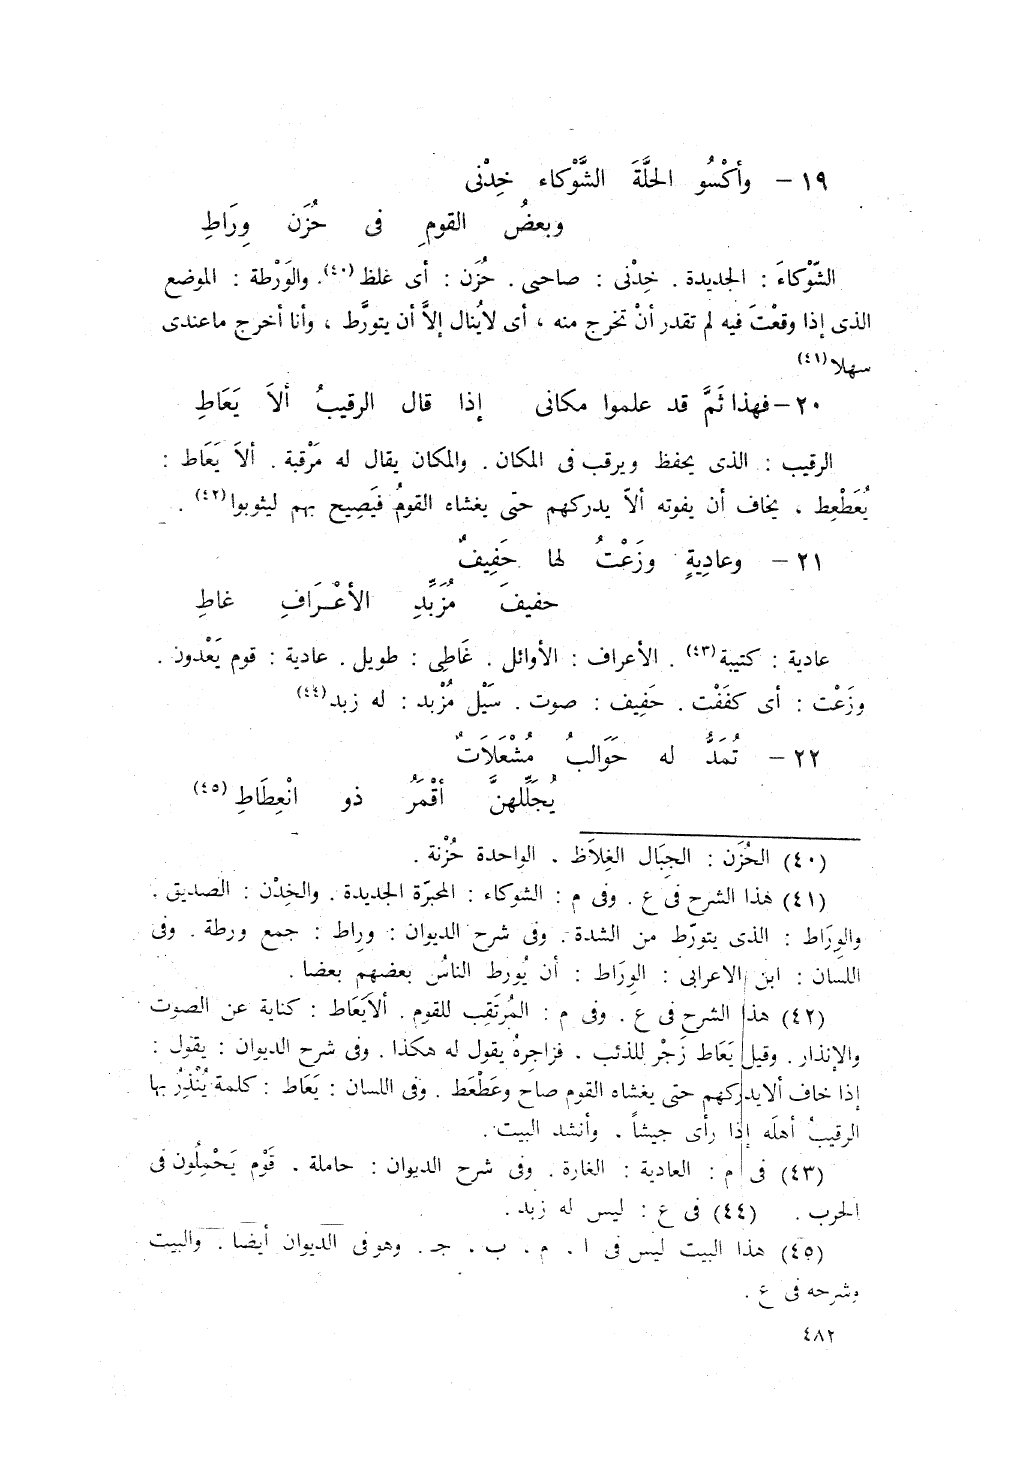 ١٩ – وأكْسُو الحلَّةَ الشَّوْكاء خِدْنى
وبعضُ القومِ فى حُزَن وِرَاطِ
الشَّوْكاءَ : الجديدة . خِدْنى : صاحبى . حُزَن : أى غلظ (٤٠). والوَرْطة : الموضع
الذى إذا وقعْتَ فيه لم تقدر أنْ تخرج منه ، أى لايُنال إلاَّ أن يتورَّط ، وأنا أخرج ماعندى
سهلا (٤١)
٢٠ – فهذا ثَمَّ قد علموا مكانى إذا قال الرقيبُ ألاَ يَعَاطِ
الرقيب : الذى يحفظ ويرقب فى المكان . والمكان يقال له مَرْقبة . ألاَ يَعَاط :
يُعَطْعِط ، يخاف أن يفوته ألاّ يدركهم حتى يغشاه القومُ فيَصِيح بهم ليثوبوا (٤٢) .
٢١ – وعادِيةٍ وزَعْتُ لها حَفِيفٌ
حفيفَ مُزَبِّدِ الأعْرَافِ غاطِ
عادية : كتيبة (٤٣) . الأعراف : الأوائل . غَاطِى : طويل . عادية : قوم يَعْدون .
وزَعْت : أى كفَفْت . حَفِيف : صوت . سَيْل مُزْبد : له زبد (٤٤)
٢٢ – تُمَدُّ له حَوَالبُ مُشْعَلاَتٌ
يُجَلِّلهنَّ أقْمَرُ ذو انْعِطَاطِ (٤٥)
(٤٠) الحُزَن : الجِبَال الغِلاَظ . الواحدة حُزْنة .
(٤١) هذا الشرح فى ع . وفى م : الشوكاء : المحبرّة الجديدة . والخِدْن : الصديق .
والوِرَاط : الذى يتورّط من الشدة . وفى شرح الديوان : وراط : جمع ورطة . وفى
اللسان : ابن الاعرابى : الوِرَاط : أن يُورط الناسُ بعضهم بعضا .
(٤٢) هذا الشرح فى ع . وفى م : المُرتَقِب للقوم . ألاَيَعَاط : كناية عن الصوت
والإنذار . وقيل يَعَاط زَجْر للذئب . فزاجِرهُ يقول له هكذا . وفى شرح الديوان : يقول :
إذا خاف ألايدركهم حتى يغشاه القوم صاح وعَطْعَط . وفى اللسان : يَعَاط : كلمة يُنْذِرُ بها
الرقيبُ أهلَه إذا رأى جيشاً . وأنشد البيت .
(٤٣) فى م : العادية : الغارة . وفى شرح الديوان : حاملة . قَوْم يَحْمِلُون فى
الحرب . (٤٤) فى ع : ليس له زبد .
(٤٥) هذا البيت ليس فى ا . م . ب . جـ . وهو فى الديوان أيضا . والبيت
وشرحه فى ع .
٤٨٢